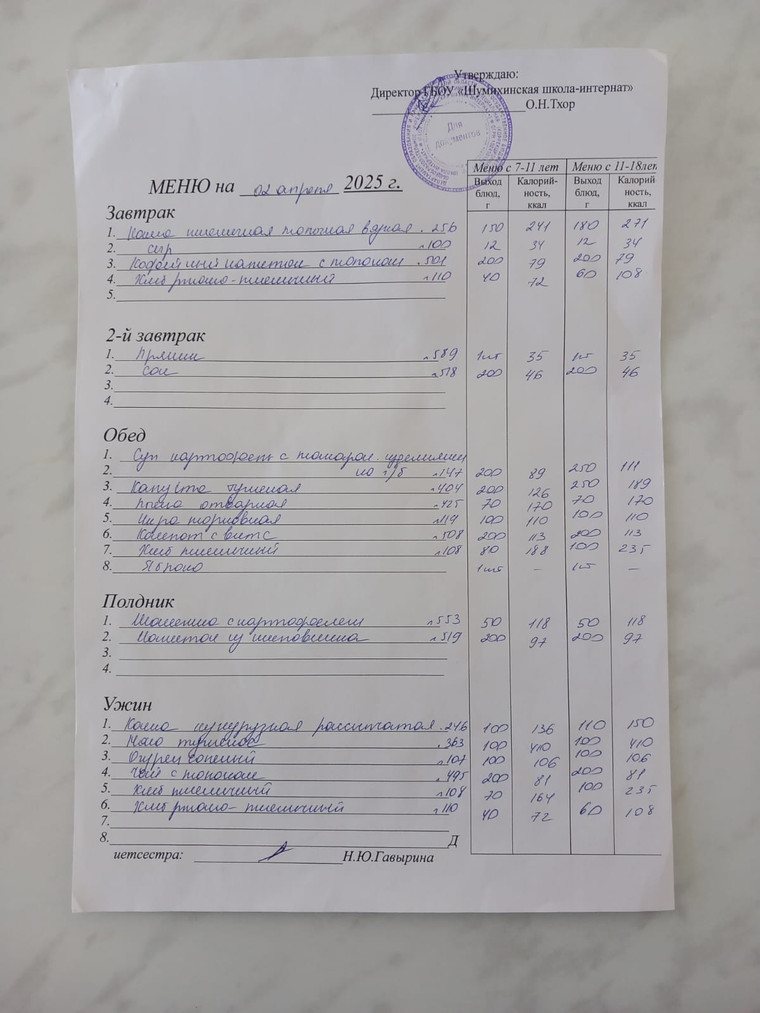 Утверждаю:
Директор ГБОУ «Шумихинская школа-интернат»
О.Н.Тхор
Для документов
МЕНЮ на 02 апреля 2025 г.
Меню с 7-11 лет Меню с 11-18лет
Выход блюд, г Калорийность, ккал Выход блюд, г Калорий ность, ккал
Завтрак
1. Каша пшеничная молочная вязкая. 256 150 241 180 271
2. сыр л100 12 34 12 34
3. Кофейный напиток с молоком л501 200 79 200 79
4. Хлеб ржано-пшеничный л110 40 72 60 108
5.
2-й завтрак
1. Пряник л589 1шт 35 1шт 35
2. Сок л518 200 46 200 46
3.
4.
Обед
1. Суп картофель с макарон. изделиями
2. на г/б л147 200 89 250 111
3. Капуста тушеная л404 200 126 250 189
4. отварная л425 70 170 70 170
5. Икра морковная л119 100 110 100 110
6. Компот с вит С л508 200 113 200 113
7. Хлеб пшеничный л108 80 188 100 235
8. Яблоко 1шт – 1шт –
Полдник
1. с картофелем л553 50 118 50 118
2. Напиток из шиповника л519 200 97 200 97
3.
4.
Ужин
1. Каша кукурузная рассыпчатая. 246 100 136 110 150
2. Мясо тушеное л363 100 410 100 410
3. Огурец соленый л107 100 106 100 106
4. Чай с молоком л495 200 81 200 81
5. Хлеб пшеничный л108 70 164 100 235
6. Хлеб ржано-пшеничный л110 40 72 60 108
7.
8. Д
иетсестра: Н.Ю.Гавырина